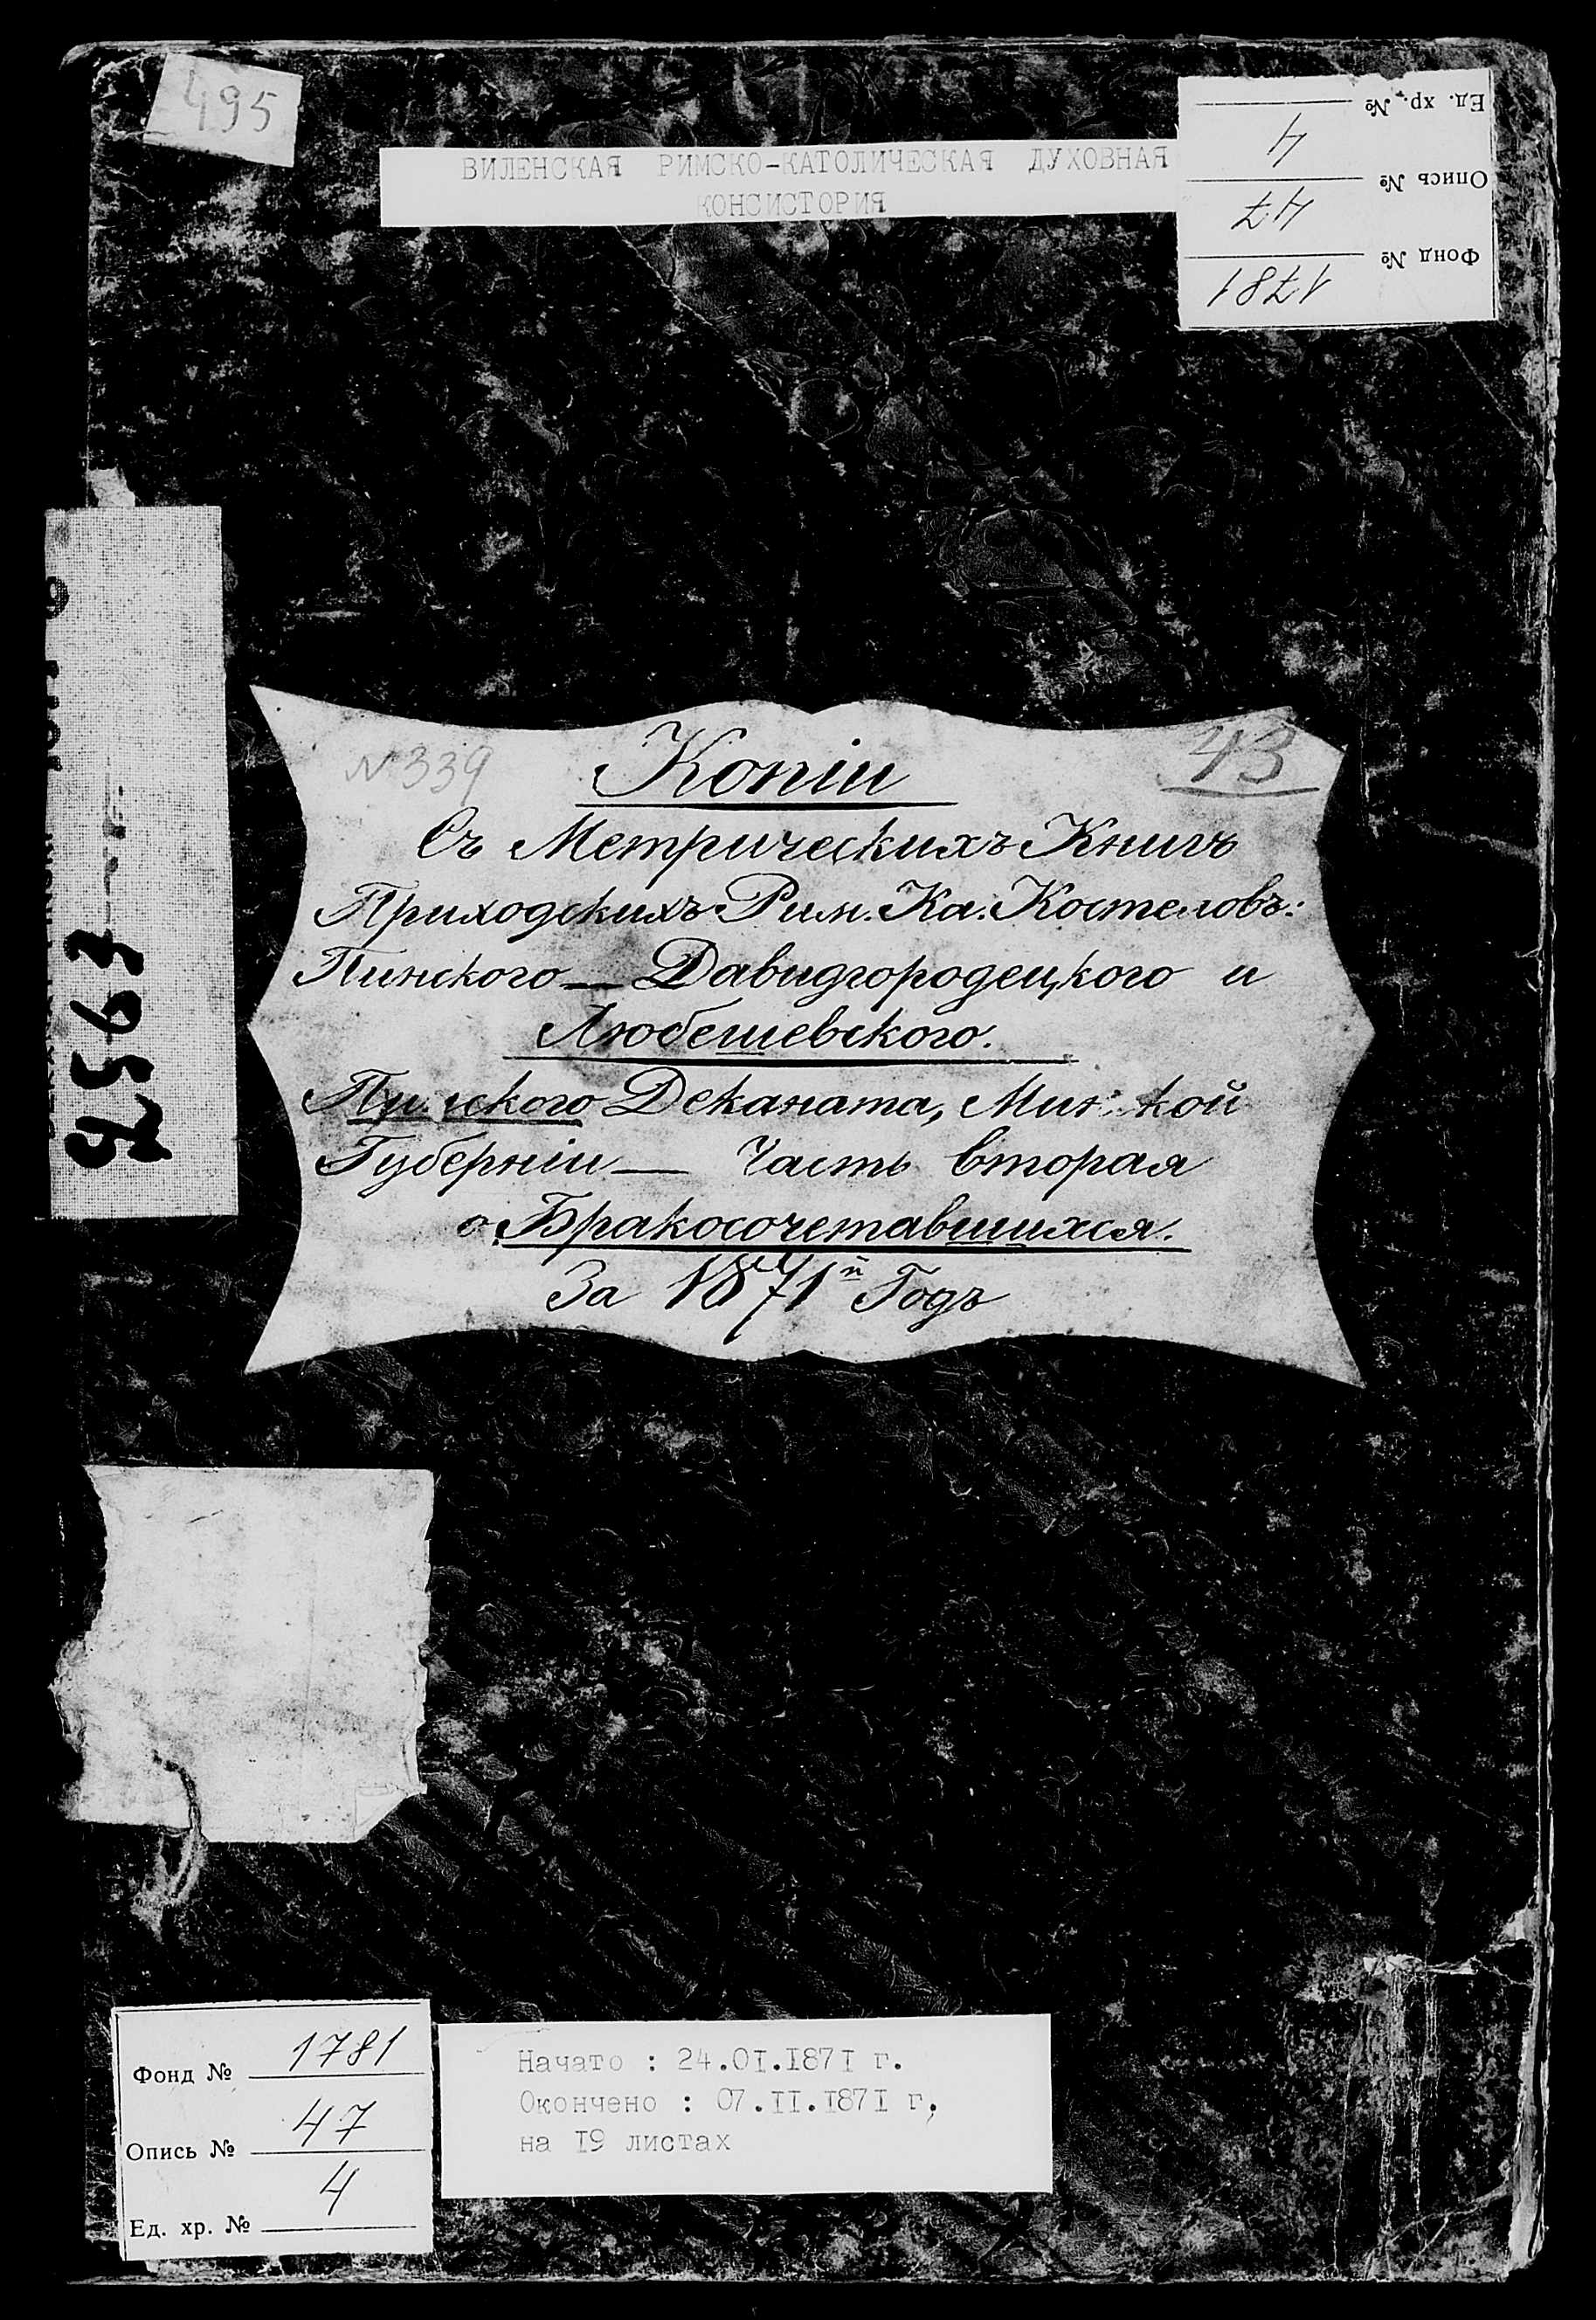 495
ВИЛЕНСКАЯ РИМСКО-КАТОЛИЧЕСКАЯ ДУХОВНАЯ
КОНСИСТОРИЯ
Фонд № 1781
Опись № 47
Ед. хр. № 4
№ 339
43
Копіи
Съ Метрическихъ Книгъ
Приходскихъ Рим. Ка. Костеловъ:
Пинского — Давидгородецкого и
Любешевского.
Деканата,
Губерніи — Часть вторая
о Бракосочетавшихся.
За 1871й Годъ
Фонд № 1781
Опись № 47
Ед. хр. № 4
Начато : 24.0I.I87I г.
Окончено : 07.II.I87I г,
на I9 листах